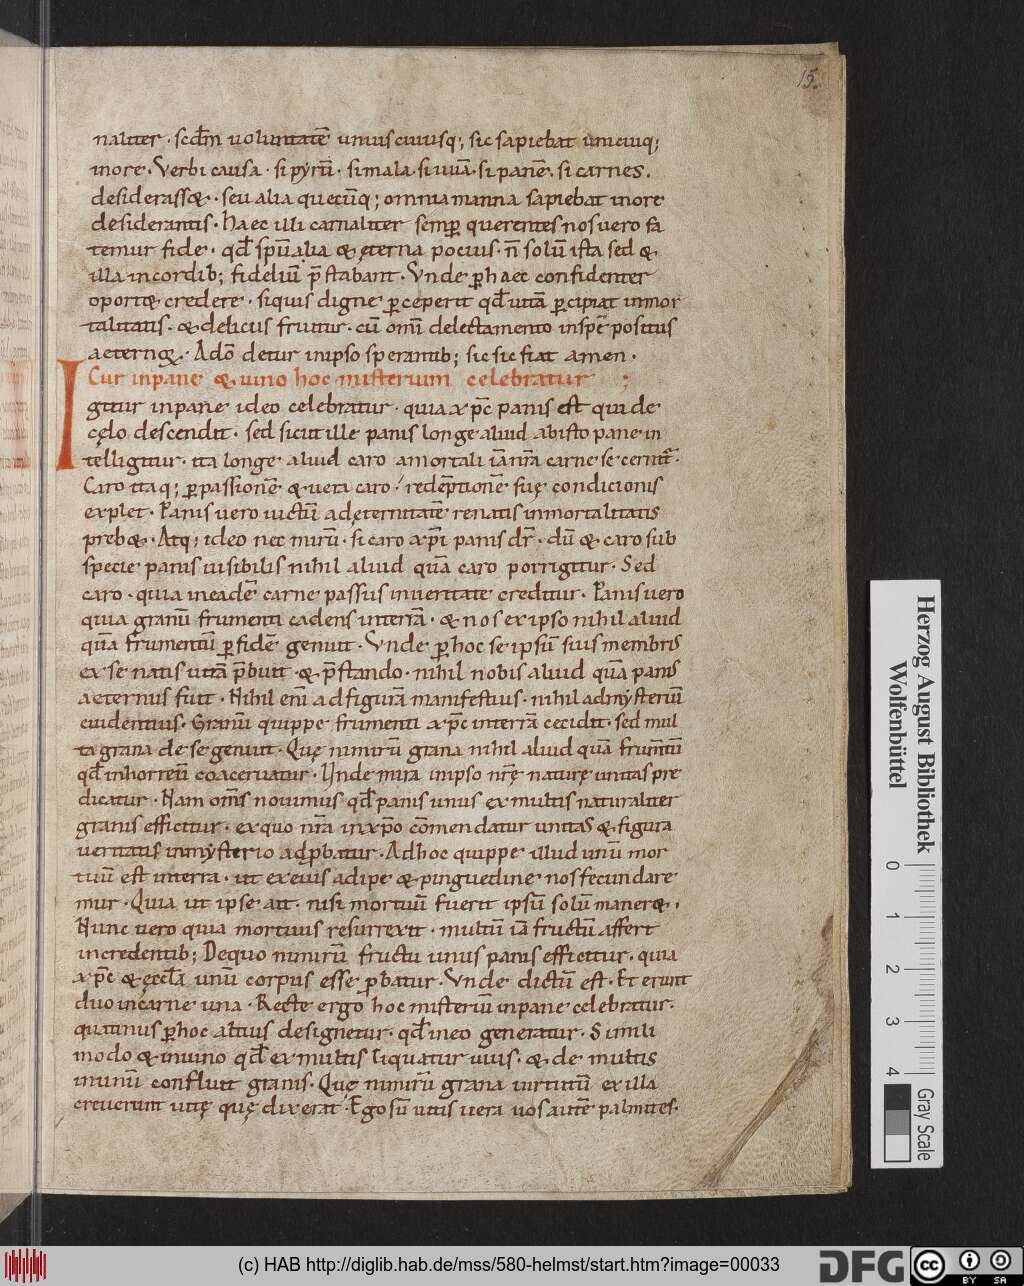 15.
naliter · scd̄m uoluntatē unius cuiusq; , sic sapiebat unicuiq;
inore . Verbi causa · si pyrū · si mala . si uuā . si panē . si carnes .
desiderass& · seu alia quecūq; ; omnia manna sapiebat inore
desiderantis · Haec illi carnaliter semp̄ querentes nos uero fa
temur fide . qd̄ spūalia & ęterna pocius · n̄ solū ista sed &
illa incordib; fideliū p̄stabant . Vnde p̱haec confidenter
oport& credere · siquis digne p̱ceperit qd̄ uitā p̱cipiat inmor
talitatis . & deliciis fruitur . cū om̄i delectamento inspē positus
aeternę . Adō detur inipso sperantib; sic sic fiat amen ·
Cur inpane & uino hoc misterium celebratur ;
Igitur inpane ideo celebratur · quia xp̄c panis est qui de
cęlo descendit . sed sicut ille panis longe aliud abisto pane in
telligitur . ita longe aliud caro amortali iā nr̄a carne se cernit̄ .
Caro itaq; p̱passionē & uera caro redēptionē suę condicionis
explet . Panis uero uictū adęternitatē renatis inmortalitatis
preb& . Atq; ideo nec mirū · si caro xp̄i panis dr̄ . dū & caro sub
specie panis uisibilis nihil aliud quā caro porrigitur . Sed
caro · quia ineadē carne passus inueritate creditur . Panis uero
quia granū frumenti cadens interrā · & nos ex ipso nihil aliud
quā frumentū p̱fidē genuit . Vnde p̱hoc se ipsū suis membris
ex se natis uitā p̄buit . & p̄stando . nihil nobis aliud quā panis
aeternus fuit . Nihil enī ad figurā manifestius . nihil admysteriū
euidentius . Granū quippe frumenti xp̄c interrā cecidit . sed mul
ta grana de se genuit . Quę nimirū grana nihil aliud quā frumtū
qd̄ inhorreū coaceruatur . Vnde mira inipso nr̄ę naturę unitas pre
dicatur . Nam om̄s nouimus qd̄ panis unus ex multis naturaliter
granis efficitur . exquo nr̄a inxp̄o cōmendatur unitas & figura
ueritatis inmysterio adp̱batur . Adhoc quippe illud unū mor
tuū est interra . ut exeius adipe & pinguedine nos fecundare
mur . Quia ut ipse ait . nisi mortuū fuerit ipsū solū maner& .
Nunc uero quia mortuus resurrexit . multū iā fructū affert
incredentib; Dequo nimirū fructu unus panis efficitur . quia
xp̄c & ecclā unū corpus esse p̱batur . Vnde dictū est . Et erunt
duo incarne una . Recte ergo hoc misteriū inpane celebratur .
quatinus p̱hoc altius designetur . qd̄ ineo generatur . Simili
modo & inuino qd̄ ex multis liquatur uuis . & de multis
inunū confluit granis . Quę nimirū grana uirtutū ex illa
creuerunt uite quę dixerat . Ego sū uitis uera uos autē palmites .
Herzog August Bibliothek
Wolfenbüttel
0 1 2 3 4
Gray Scale
(c) HAB http://diglib.hab.de/mss/580-helmst/start.htm?image=00033
DFG
cc BY SA